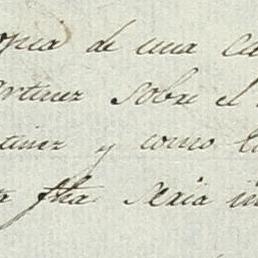 opia de una ca
artinez sobre el
tinez y como
fha seria in